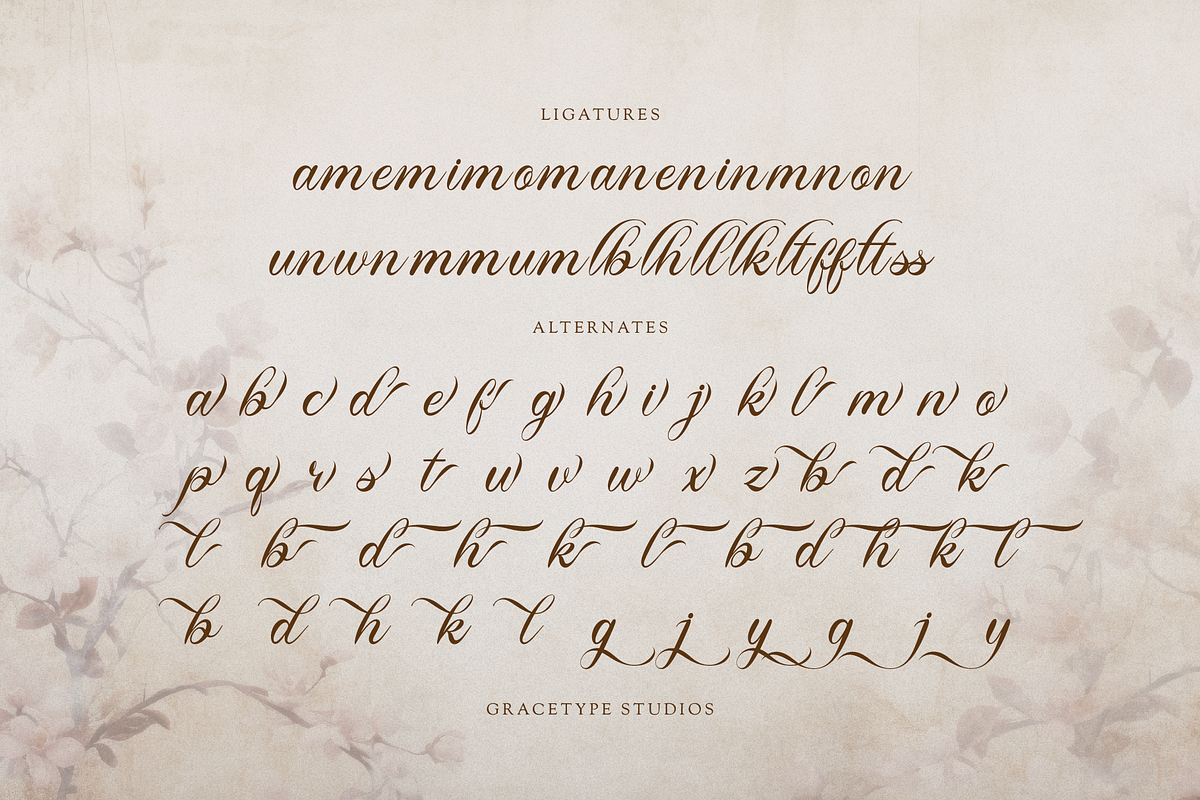 LIGATURES
amemimomaneninmnon
unwnmmumlblhlllkltffttss
ALTERNATES
a b c d e f g h i j k l m n o
p q r s t u v w x z b d k
l b d h k l b d h k l
b d h k l g j y g j y
GRACETYPE STUDIOS